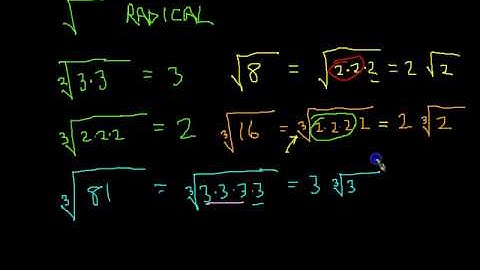 √ RADICAL
²√3·3 = 3 √8 = √2·2·2 = 2 √2
³√2·2·2 = 2 ³√16 = ³√2·2·2·2 = 2 ³√2
³√81 = ³√3·3·3·3 = 3 ³√3